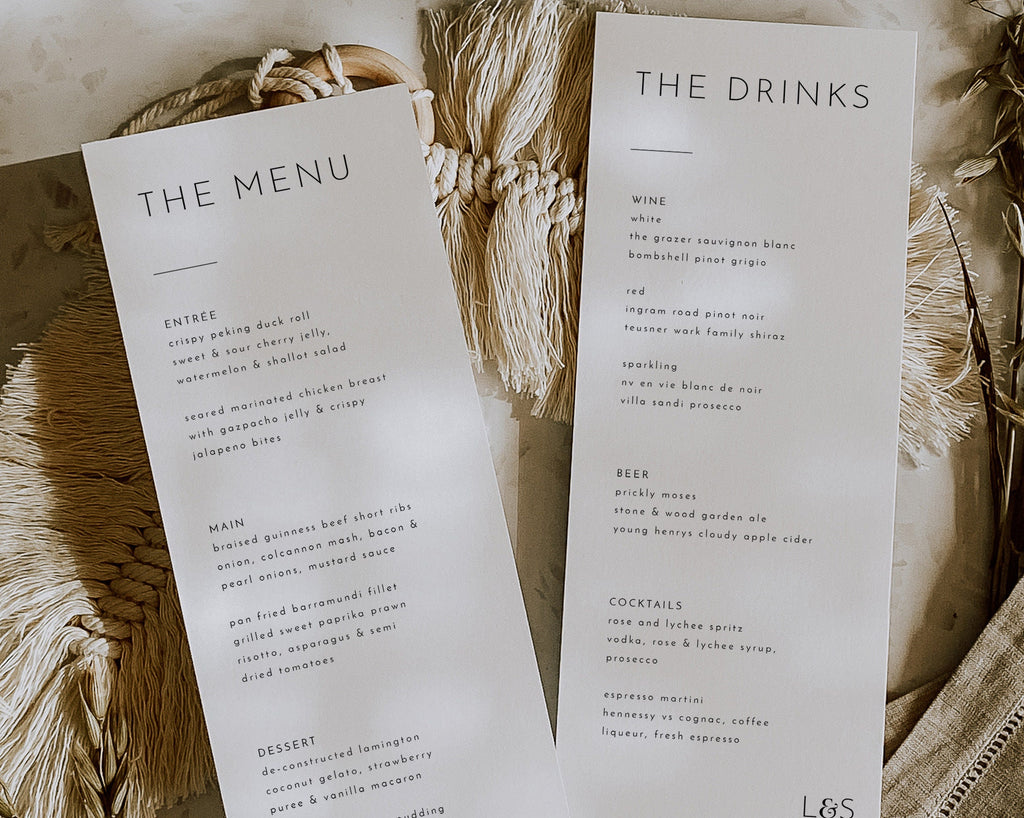 THE MENU
ENTRÉE
crispy peking duck roll
sweet & sour cherry jelly,
watermelon & shallot salad
seared marinated chicken breast
with gazpacho jelly & crispy
jalapeno bites
MAIN
braised guinness beef short ribs
onion, colcannon mash, bacon &
pearl onions, mustard sauce
pan fried barramundi fillet
grilled sweet paprika prawn
risotto, asparagus & semi
dried tomatoes
DESSERT
de-constructed lamington
coconut gelato, strawberry
puree & vanilla macaron
THE DRINKS
WINE
white
the grazer sauvignon blanc
bombshell pinot grigio
red
ingram road pinot noir
teusner wark family shiraz
sparkling
nv en vie blanc de noir
villa sandi prosecco
BEER
prickly moses
stone & wood garden ale
young henrys cloudy apple cider
COCKTAILS
rose and lychee spritz
vodka, rose & lychee syrup,
prosecco
espresso martini
hennessy vs cognac, coffee
liqueur, fresh espresso
L&S